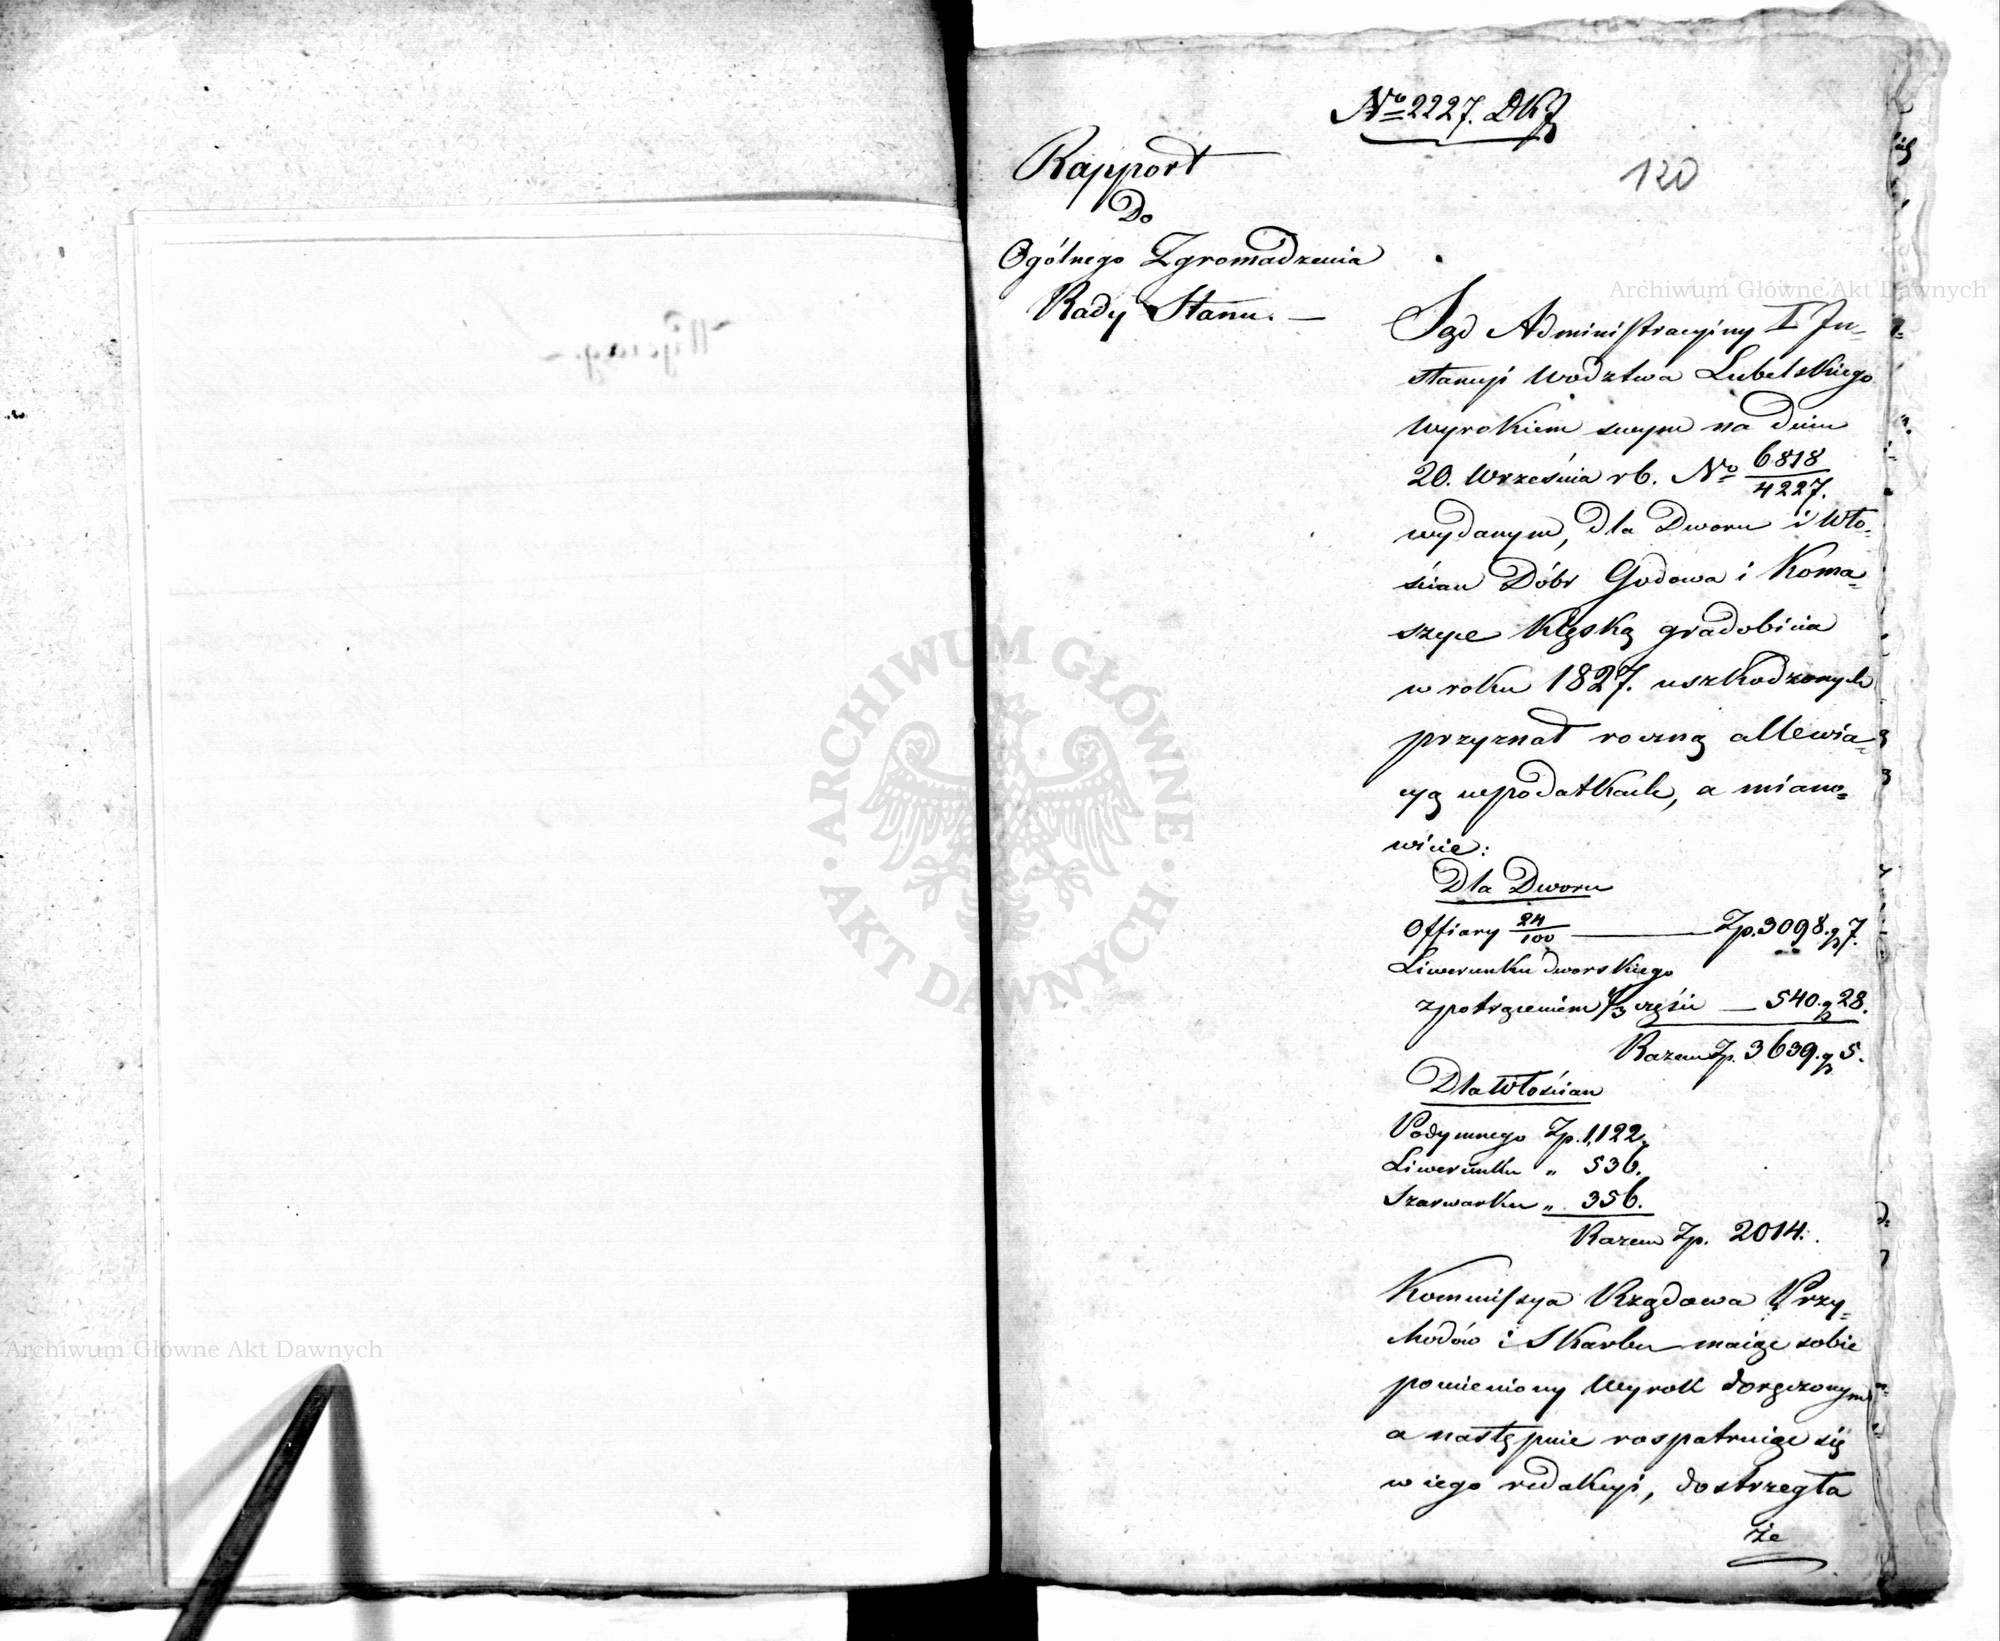 Wyciąg. –
No 2227. DKJ
120
Rapport
Do
Ogólnego Zgromadzenia
Rady Stanu. —
Sąd Administracyjny I In-
stancyi Wodztwa Lubelskiego
wyrokiem swym na dniu
20. Września rb. No 6818/4227.
wydanym, dla Dworu i Wło-
ścian Dóbr Godowa i Koma-
szyce klęską gradobicia
w roku 1827. uszkodzonych
przyznał roczną allewia-
cyą w podatkach, a miano-
wicie:
Dla Dworu
Offiary 24/100 — Zp. 3098. g 7.
Liwerunku dworskiego
z potrąceniem 1/3 części — 540. g 28.
Razem Zp. 3639. g 5.
Dla Włościan
Podymnego Zp. 1,122,
Liwerunku „ 536.
Szarwarku „ 356.
Razem Zp. 2014.
Kommissya Rządowa Przy-
chodów i Skarbu maiąc sobie
pomieniony Wyrok doręczonym
a następnie rospatruiąc się
w iego redakcyi, dostrzegła
że
Archiwum Główne Akt Dawnych
Archiwum Główne Akt Dawnych
ARCHIWUM GŁÓWNE
AKT DAWNYCH